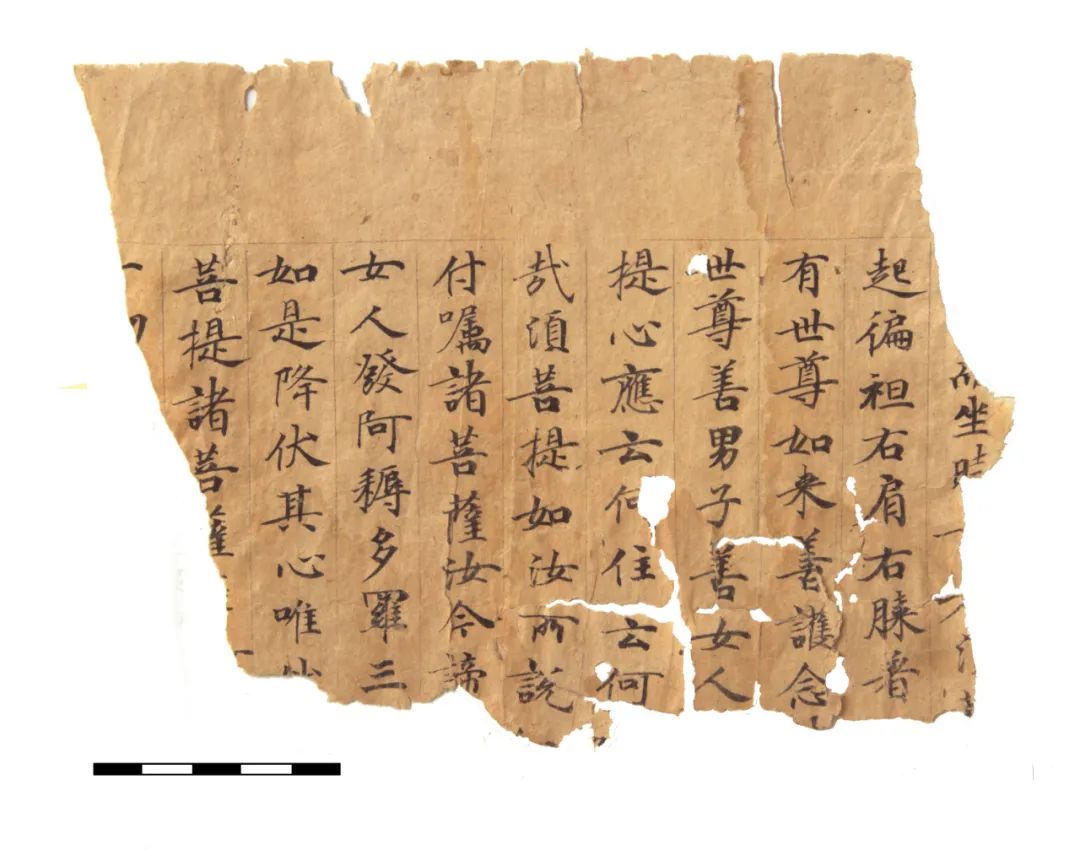 坐時
起徧袒右肩右膝着
有世尊如来善護念
世尊善男子善女人
提心應云何住云何
㢤湏菩提如汝所說
付嘱諸菩薩汝今諦
女人發阿耨多羅三
如是降伏其心唯
菩提諸菩薩
一切